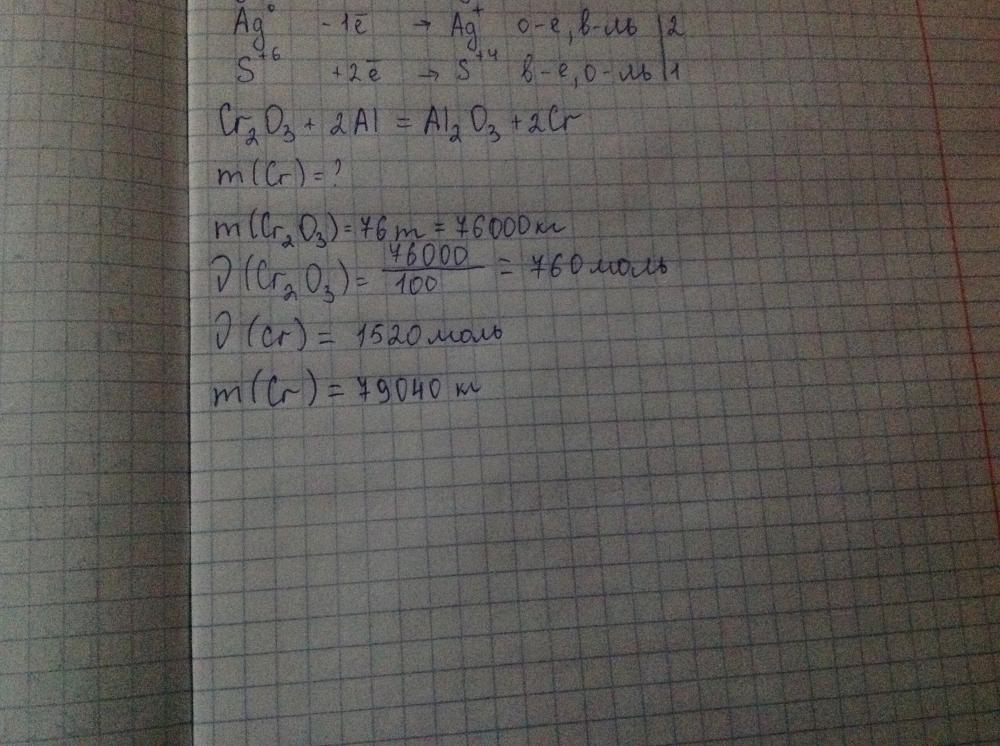 Ag⁰ -1ē → Ag⁺ о-е, в-ль | 2
S⁺⁶ +2ē → S⁺⁴ в-е, о-ль | 1
Cr₂O₃ + 2Al = Al₂O₃ + 2Cr
m(Cr) = ?
m(Cr₂O₃) = 76 т = 76000 кг
ν(Cr₂O₃) = 76000/100 = 760 моль
ν(Cr) = 1520 моль
m(Cr) = 79040 кг